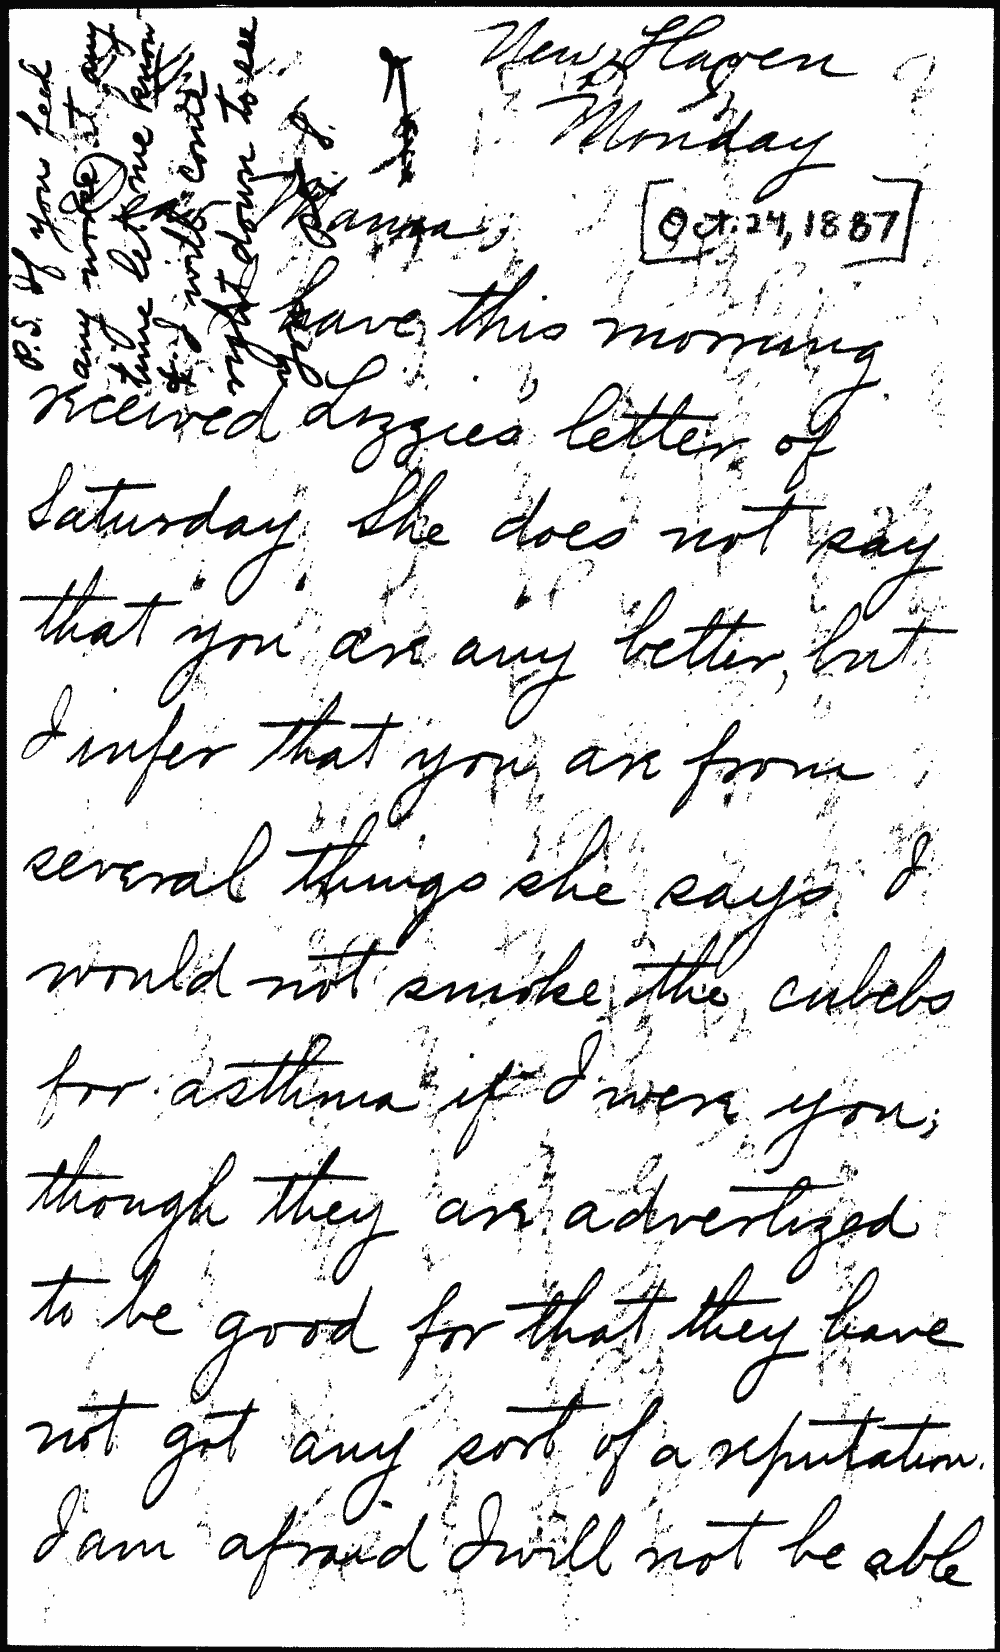 New Haven
Monday
[Oct. 24, 1887]
Dear Mama,
I have this morning
received Lizzies letter of
Saturday She does not say
that you are any better, but
I infer that you are from
several things she says I
would not smoke the cubebs
for asthma if I were you,
though they are advertized
to be good for that they have
not got any sort of a reputation.
I am afraid I will not be able
P.S. If you feel
any worse at any
time let me know
& I will come
right down to see
you